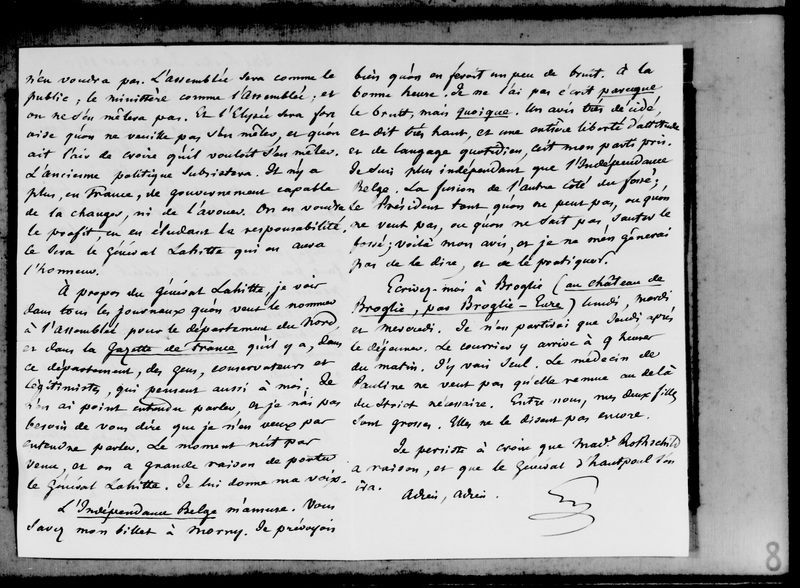 n'en voudra pas. L'assemblée sera comme le
public; le ministère comme l'assemblée; et
on ne s'en mêlera pas. Et l'Elysée sera fort
aise qu'on ne veuille pas s'en mêler, et qu'on
ait l'air de croire qu'il vouloit s'en mêler.
L'ancienne politique subsistera. Il n'y a
plus, en France, de gouvernement capable
de la changer, ni de l'avouer. On en voudra
le profit, en en éludant la responsabilité.
Ce sera le Général Lahitte qui en aura
l'honneur.
À propos du Général Lahitte, je vois
dans tous les journaux qu'on veut le nommer
à l'assemblée pour le département du Nord,
et dans la Gazette de France qu'il y a, dans
ce département, des gens, conservateurs et
légitimistes, qui pensent aussi à moi. Je
n'en ai point entendu parler, et je n'ai pas
besoin de vous dire que je n'en veux pas
entendre parler. Le moment n'est pas
venu, et on a grande raison de porter
le Général Lahitte. Je lui donne ma voix.
L'Indépendance Belge m'amuse. Vous
savez mon billet à Morny. Je prévoyois
bien qu'on en feroit un peu de bruit. À la
bonne heure. Je ne l'ai pas écrit parceque
le bruit, mais quoique. Un avis très décidé
et dit très haut, et une entière liberté d'attitude
et de langage quotidien, c'est mon parti pris.
Je suis plus indépendant que l'Indépendance
Belge. La fusion de l'autre côté du fossé;
le Président tant qu'on ne peut pas, ou qu'on
ne veut pas, ou qu'on ne sait pas sauter le
fossé; voilà mon avis, et je ne m'en gênerai
pas de le dire, et de le pratiquer.
Ecrivez-moi à Broglie (au château de
Broglie, par Broglie-Eure) lundi, mardi
et mercredi. Je n'en partirai que Jeudi, après
le déjeuner. Le courrier y arrive à 9 heures
du matin. J'y vais seul. Le médecin de
Pauline ne veut pas qu'elle remue au delà
du strict nécessaire. Entre nous, mes deux filles
sont grosses. Elles ne le disent pas encore.
Je persiste à croire que Mad. Rothschild
a raison, et que le Général d'hautpoul s'en
ira.
Adieu, adieu.
8